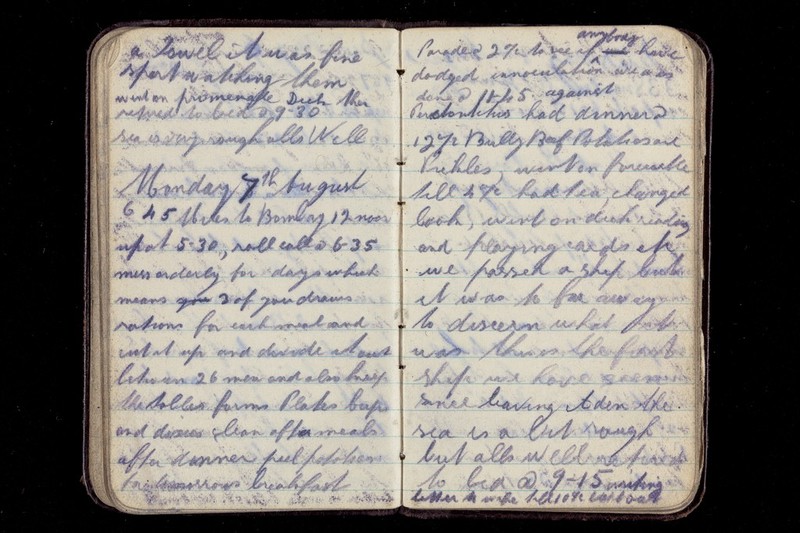 a towel it was fine
sport watching them
went on promenade Deck then
retired to bed @ 9-30
sea is very rough alls Well
Monday 7th August
645 Miles to Bombay 12 noon
up at 5-30, roll call @ 6-35
mess orderly for days which
means you 2 of you draws
rations for each meal and
cut it up and divide it out
between 26 men and also keep
the tables forms Plates cups
and clean after meals
after dinner peel potatoes
for tomorrows breakfast
Parade @ 2 o/c to see if anybody have
dodged innoculation
done @ against
had dinner @
12 o/c Bully Beef Potatoes and
Pickles, went on
till 4 o/c had tea, changed
book, went on deck reading
and playing cards etc
we passed a ship but
it was to far away
to discern what
was this is the first
ship we have seen
since leaving Aden the
sea is a bit rough
but alls well retired
to bed @ 9-15 writing
letter to wife till 10 o/c